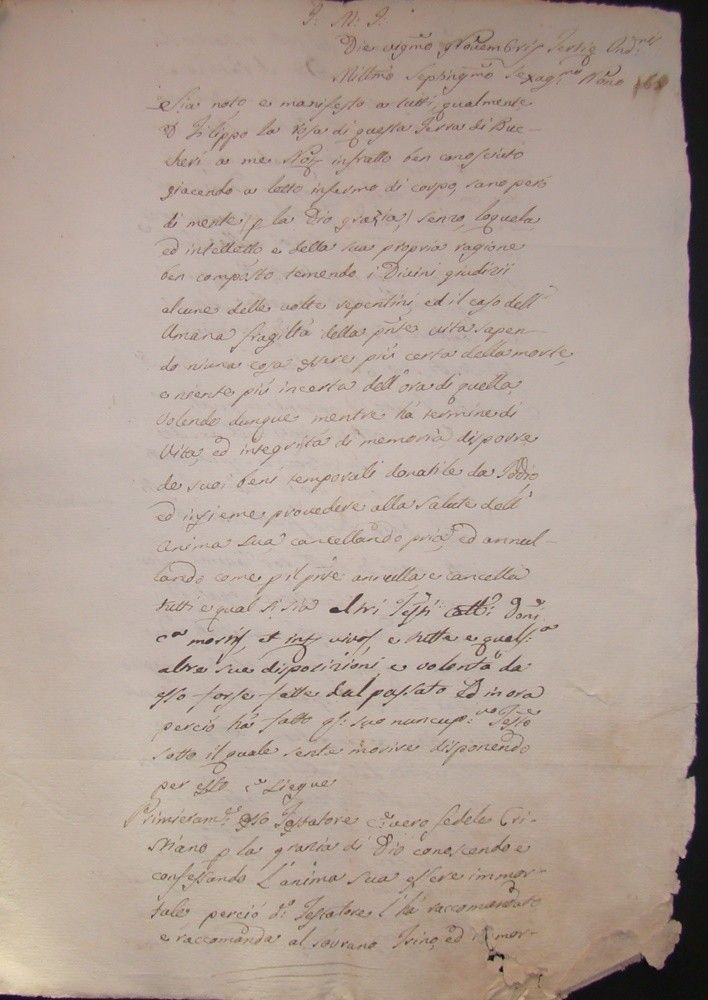 J: M: J:
Die vigmo Novembris Tertiae Ind:nis
Millmo Septingmo Sexag:mo Nono
Sia noto e manifesto a tutti, qualmente
D Filippo la rosa di questa Terra di Buc-
cheri a me Not: infratto ben conosciuto
giacendo a letto infermo di corpo, sano però
di mente p la Dio grazia, senzo, loquela
ed intelletto e della sua propria ragione
ben composto temendo i Divini giudizii
alcune delle volte repentini, ed il caso dell'
Umana fragiltà della pnte vita, sapen-
do niuna cosa essere più certa della morte,
e niente più incerta dell'ora di quella,
volendo dunque mentre há termine di
Vita, ed integrità di memoria disporre
de suoi beni temporali donatile da Iddio,
ed insieme provedere alla salute dell'
anima sua cancellando pria, ed annul-
lando come p il pnte annulla e cancella
tutti e qual si sia altri Testi: Doni:
ca mortis, et inter vivos e tutte e quals:a
altre sue disposizioni, e volontà da
esso forse fatte dal passato ed in ora
perciò há fatto qs: suo nuncup:vo Testo
sotto il quale sente morire disponendo
per esso ce siegue
Primieram:te esso Testatore ce vero fedele Cri-
stiano p la grazia di Dio conoscendo e
confessando l'anima sua essere immor-
tale perciò do: Testatore l'há raccomandato
e raccomanda al sovrano Trino, ed